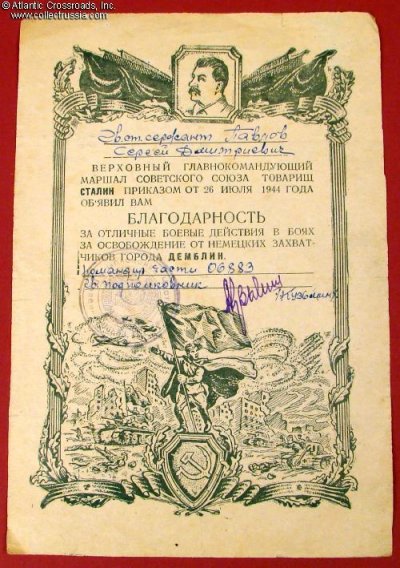 © Atlantic Crossroads, Inc.
www.collectrussia.com
Гв. ст. сержант Гаврлов
Сергей Дмитриевич
ВЕРХОВНЫЙ ГЛАВНОКОМАНДУЮЩИЙ
МАРШАЛ СОВЕТСКОГО СОЮЗА ТОВАРИЩ
СТАЛИН ПРИКАЗОМ ОТ 26 ИЮЛЯ 1944 ГОДА
ОБ'ЯВИЛ ВАМ
БЛАГОДАРНОСТЬ
ЗА ОТЛИЧНЫЕ БОЕВЫЕ ДЕЙСТВИЯ В БОЯХ
ЗА ОСВОБОЖДЕНИЕ ОТ НЕМЕЦКИХ ЗАХВАТ-
ЧИКОВ ГОРОДА ДЕМБЛИН.
Командир части 06883
гв. подполковник